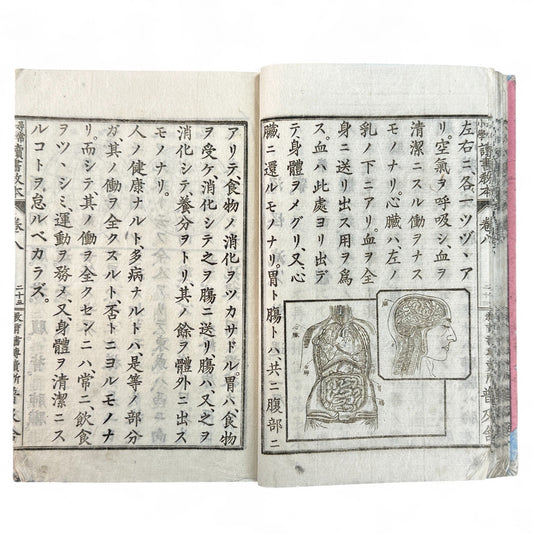 讀書教本 卷八 普及舍
左右ニ各一ツヅヽア
リ。空氣ヲ呼吸シ血ヲ
清潔ニスル働ヲナス
モノナリ。心臟ハ、左ノ
乳ノ下ニアリ。血ヲ全
身ニ送リ出ス用ヲ爲
ス。血ハ此處ヨリ出デ
テ、身體ヲメグリ、又心
臟ニ還ルモノナリ。胃ト腸トハ、共ニ腹部ニ
アリテ、食物ノ消化ヲツカサドル。胃ハ食物
ヲ受ケ、消化シテ之ヲ腸ニ送リ、腸ハ又、之ヲ
消化シテ養分ヲトリ、其ノ餘ヲ體外ニ出ス
モノナリ。
人ノ健康ナルト、多病ナルトハ、是等ノ部分
ガ其ノ働ヲ全クスルト、否トニヨルモノナ
リ。而シテ其ノ働ヲ全クセンニハ、常ニ飲食
ヲツヽシミ、運動ヲ務メ、又身體ヲ清潔ニス
ルコトヲ怠ルベカラズ。
尋常讀書教本 卷八